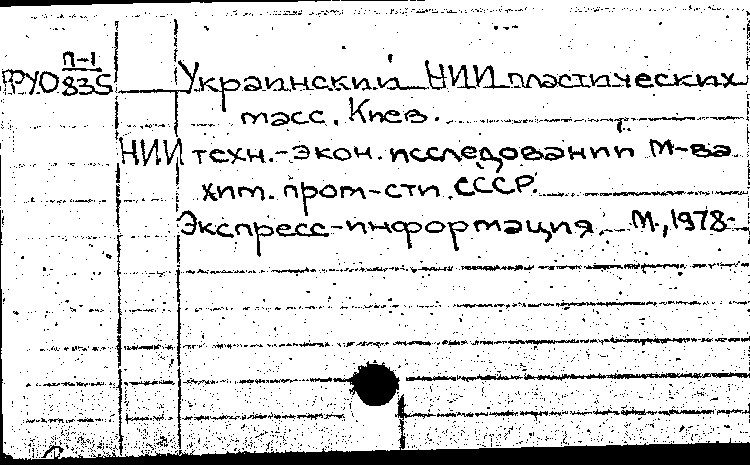 П-1
РУО 835
Украинский НИИ пластических
масс. Киев.
НИИ техн.-экон. исследований М-ва
хим. пром-сти СССР.
Экспресс-информация. М., 1978-